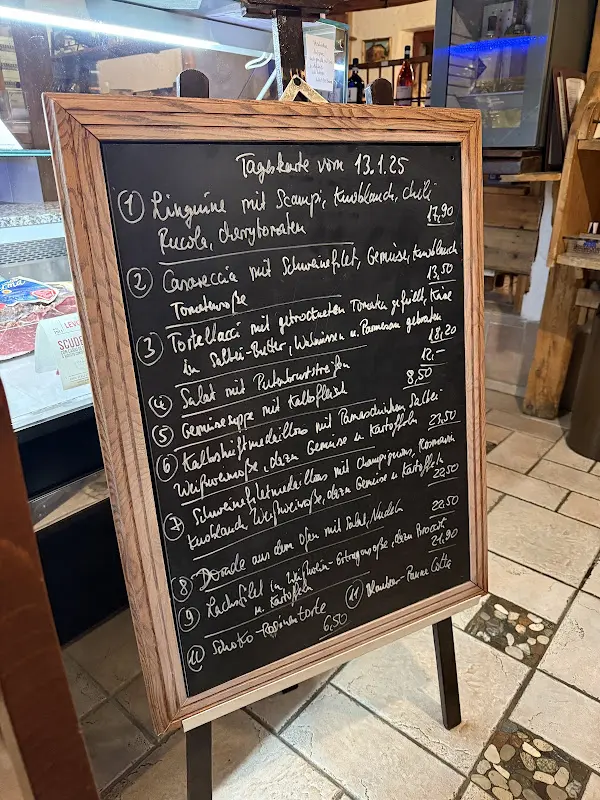 Tageskarte vom 13.1.25
① Linguine mit Scampi, Knoblauch, Chili
Rucola, Cherrytomaten 17,90
② Casareccia mit Schweinefilet, Gemüse, Knoblauch
Tomatensoße 13,50
③ Tortellacci mit getrockneten Tomaten gefüllt, Käse
in Salbei-Butter, Walnüssen u. Parmesan gebraten 18,20
④ Salat mit Putenbruststreifen 12,-
⑤ Gemüsesuppe mit Kalbfleisch 8,50
⑥ Kalbshüftmedaillons mit Parmaschinken Salbei
Weißweinsoße, dazu Gemüse u. Kartoffeln 23,50
⑦ Schweinefiletmedaillons mit Champignons, Rosmarin
Knoblauch, Weißweinsoße, dazu Gemüse u. Kartoffeln 22,50
⑧ Dorade aus dem Ofen mit Salat, Nudeln 22,50
⑨ Lachsfilet in Weißwein-Estragonsoße, dazu Broccoli 21,90
u. Kartoffeln
⑩ Schoko-Rosinentorte ⑪ Panna Cotta
6,50
SCUDE